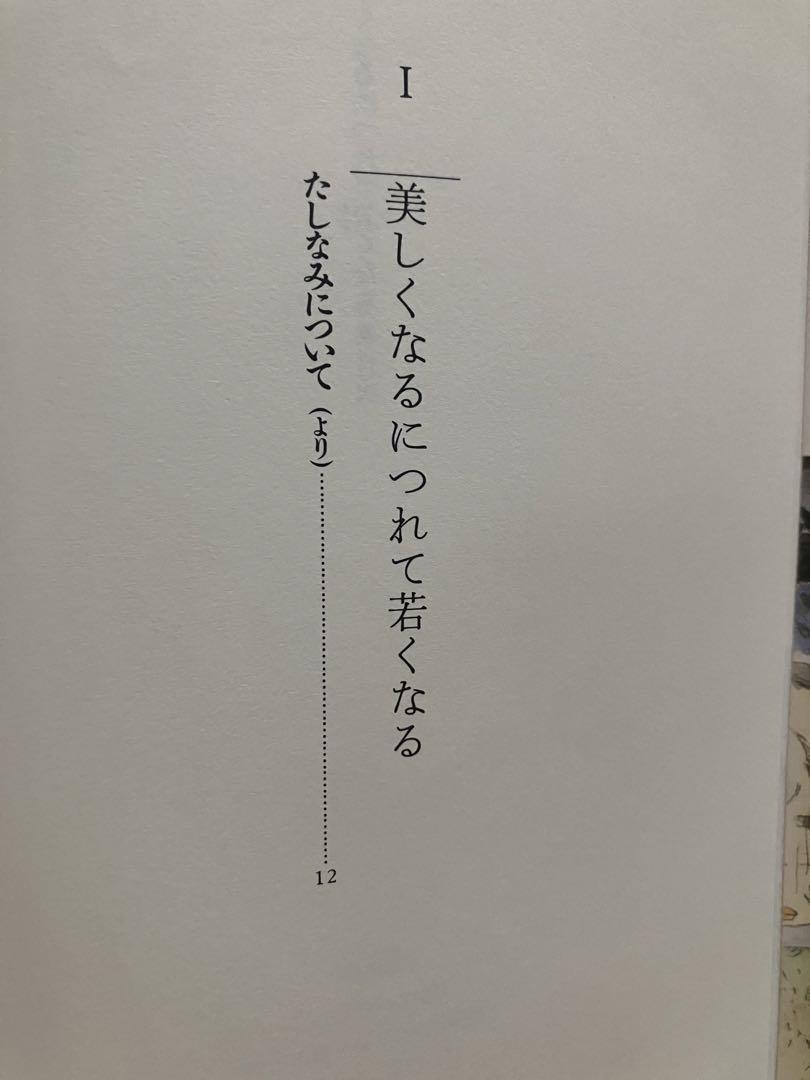 I
美しくなるにつれて若くなる
たしなみについて（より）……………………………12